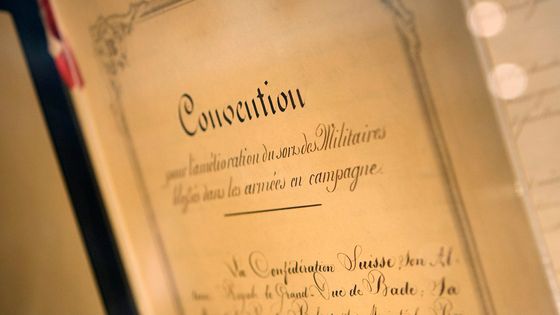 Convention
pour l'amélioration du sort des Militaires
blessés dans les armées en campagne.
La Confédération Suisse, Son Al-
tesse Royale le Grand-Duc de Bade, Sa